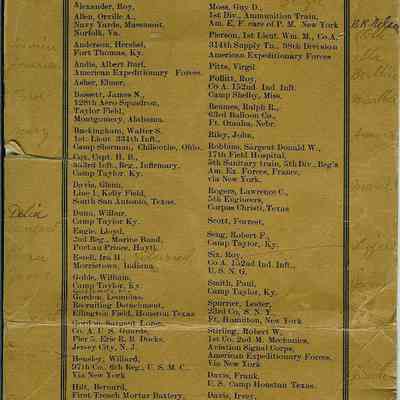 Alexander, Roy,
Allen, Orville A.,
Navy Yards, Masement,
Norfolk, Va.
Anderson, Hershel,
Fort Thomas, Ky.
Andis, Albert Burl,
American Expeditionary Forces.
Asher, Elmer,
Bassett, James N.,
128th Aero Squadron,
Taylor Field,
Montgomery, Alabama.
Buckingham, Walter S.
1st. Lieut. 334th Inft.,
Camp Sherman, Chilicothe, Ohio.
Cox, Capt. H. B.,
Reg., Infirmary,
Camp Taylor, Ky.
Davis, Glenn,
Line 1, Kelly Field,
South San Antonio, Texas.
Dunn, Wilbur,
Camp Taylor Ky.
Engle, Lloyd,
2nd Reg., Marine Band,
Port au Prince, Hayti.
Ira H.
Morristown, Indiana,
Goble, William,
Camp Taylor, Ky.
Gordon, Leonidas,
Recruiting Detachment,
Ellington Field, Houston Texas
Gordon, Sargent Loper,
Co. A. U. S. Guards,
Pier 5, Erie R. R. Docks,
Jersey City, N. J.
Hensley, Willard,
97th Co., 6th Reg., U. S. M. C.
Via New York
Hilt, Bernard,
First Trench Mortar Battery,
Moss, Guy D.,
1st Div., Ammunition Train,
Am. E. F. care of P. M. New York
Pierson, 1st Lieut. Wm. M., Co A.
314th Supply Tn., 89th Division
American Expeditionary Forces
Pitts, Virgil
Pollitt, Roy,
Co A 152nd. Ind. Inft.
Camp Shelby, Miss.
Reames, Ralph R.,
63rd Balloon Co.,
Ft. Omaha, Nebr.
Riley, John,
Robbins, Sargeat Donald W.,
17th Field Hospital,
5th Sanitary train, 5th Div., Reg's
Am. Ex. Forces, France,
via New York.
Rogers, Lawrence C.,
5th Engineers,
Corpus Christi, Texas
Scott, Forrest,
Seng, Robert F.,
Camp Taylor, Ky.
Six, Roy,
Co A. 152nd Ind. Inft.,
U. S. N. G.
Smith, Paul,
Camp Taylor, Ky.
Spurrier, Lester,
23rd Co., N. Y.
Ft. Hamilton, New York
Stirling, Robert W.
1st Co. 2nd M. Mechanics,
Aviation Signal Corps,
American Expeditionary Forces,
Via New York
Davis, Frank,
U. S. Camp Houstan Texas.
Davis, Irvey,
Delia